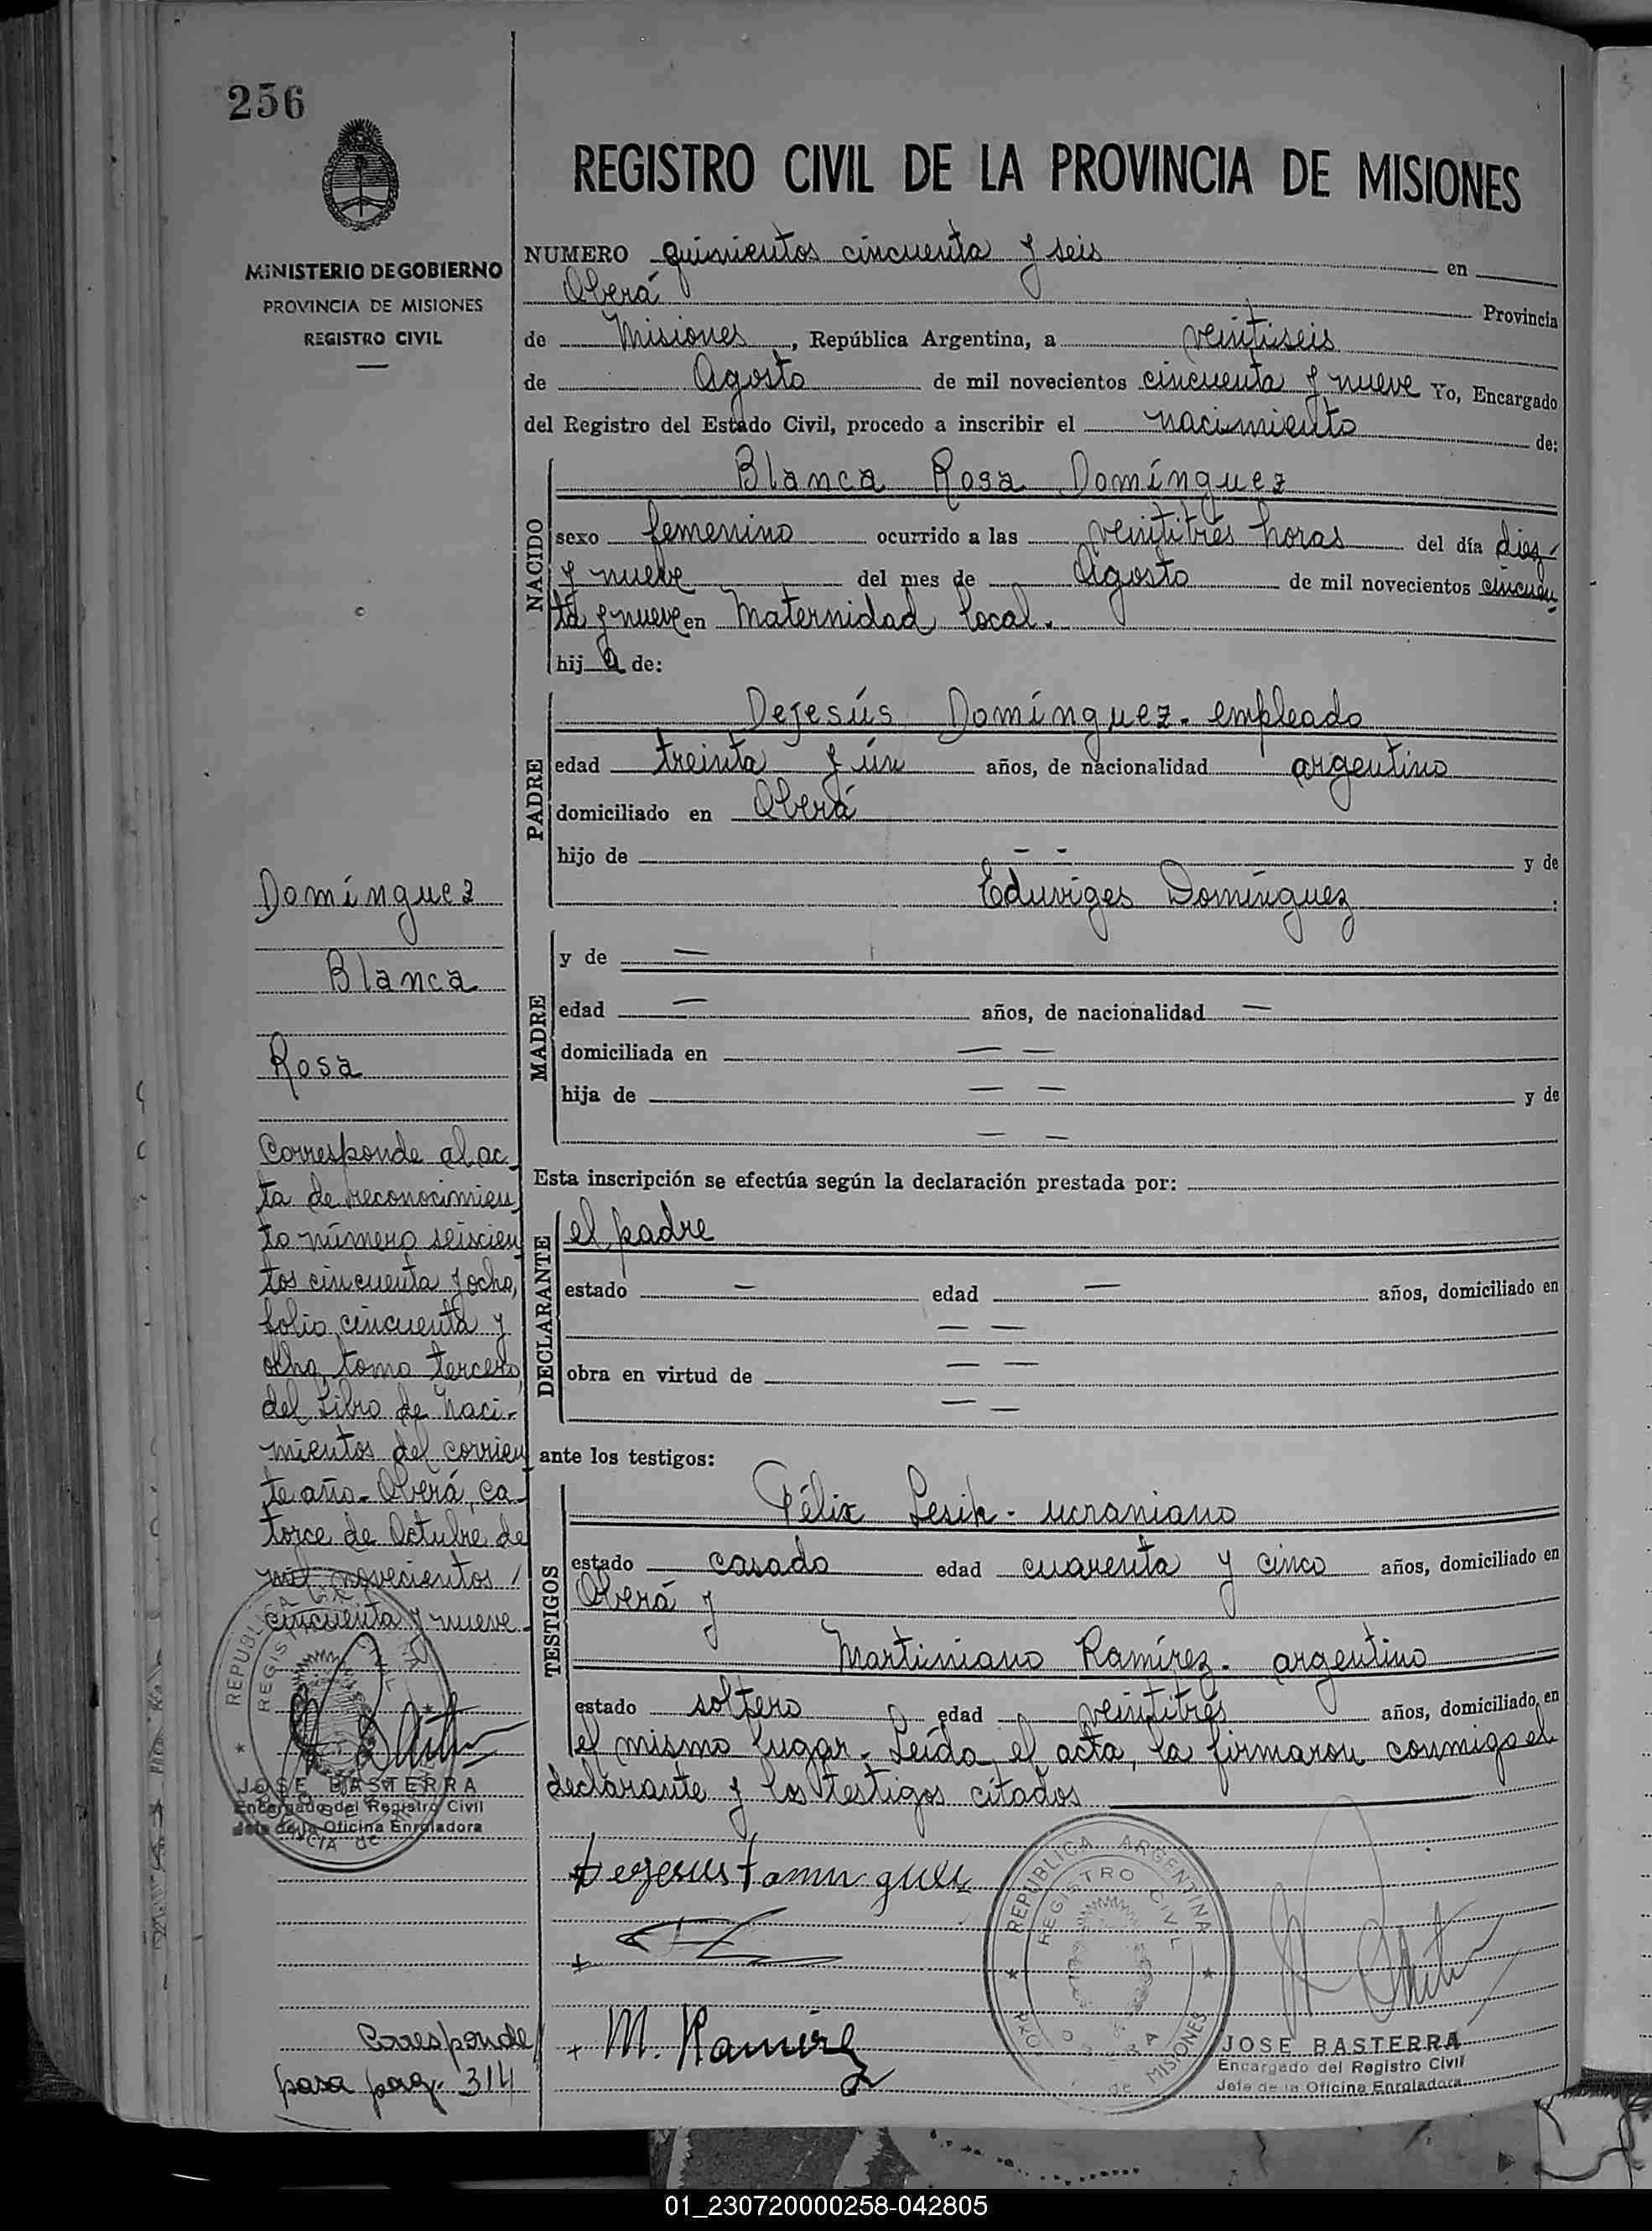 256
MINISTERIO DE GOBIERNO
PROVINCIA DE MISIONES
REGISTRO CIVIL
REGISTRO CIVIL DE LA PROVINCIA DE MISIONES
NUMERO quinientos cincuenta y seis en
Oberá Provincia
de Misiones, República Argentina, a veintiseis
de Agosto de mil novecientos cincuenta y nueve Yo, Encargado
del Registro del Estado Civil, procedo a inscribir el nacimiento de:
NACIDO
Blanca Rosa Domínguez
sexo femenino ocurrido a las veintitrés horas del día diez
y nueve del mes de Agosto de mil novecientos cincuen
ta y nueve en Maternidad local.
hij a de:
PADRE
Dejesús Domínguez - empleado
edad treinta y ún años, de nacionalidad argentino
domiciliado en Oberá
hijo de - - y de
Eduviges Domínguez :
MADRE
y de —
edad — años, de nacionalidad —
domiciliada en — —
hija de — — y de
— —
Esta inscripción se efectúa según la declaración prestada por:
DECLARANTE
el padre
estado — edad — años, domiciliado en
— —
obra en virtud de — —
— —
ante los testigos:
TESTIGOS
Félix Lesik - ucraniano
estado casado edad cuarenta y cinco años, domiciliado en
Oberá y
Martiniano Ramírez - argentino
estado soltero edad veintitrés años, domiciliado en
el mismo lugar. Leída el acta, la firmaron conmigo el
declarante y los testigos citados
M. Ramírez
REPUBLICA ARGENTINA
REGISTRO CIVIL
OBERA
MISIONES
JOSE BASTERRA
Encargado del Registro Civil
Jefe de la Oficina Enroladora
Domínguez
Blanca
Rosa
Corresponde al ac-
ta de reconocimien
to número seiscien
tos cincuenta y ocho,
folio cincuenta y
ocho, tomo tercero,
del Libro de Naci-
mientos del corrien
te año. Oberá, ca-
torce de Octubre de
mil novecientos
cincuenta y nueve
JOSE BASTERRA
Encargado del Registro Civil
Jefe de la Oficina Enroladora
Corresponde
pasa pag. 314
01_230720000258-042805